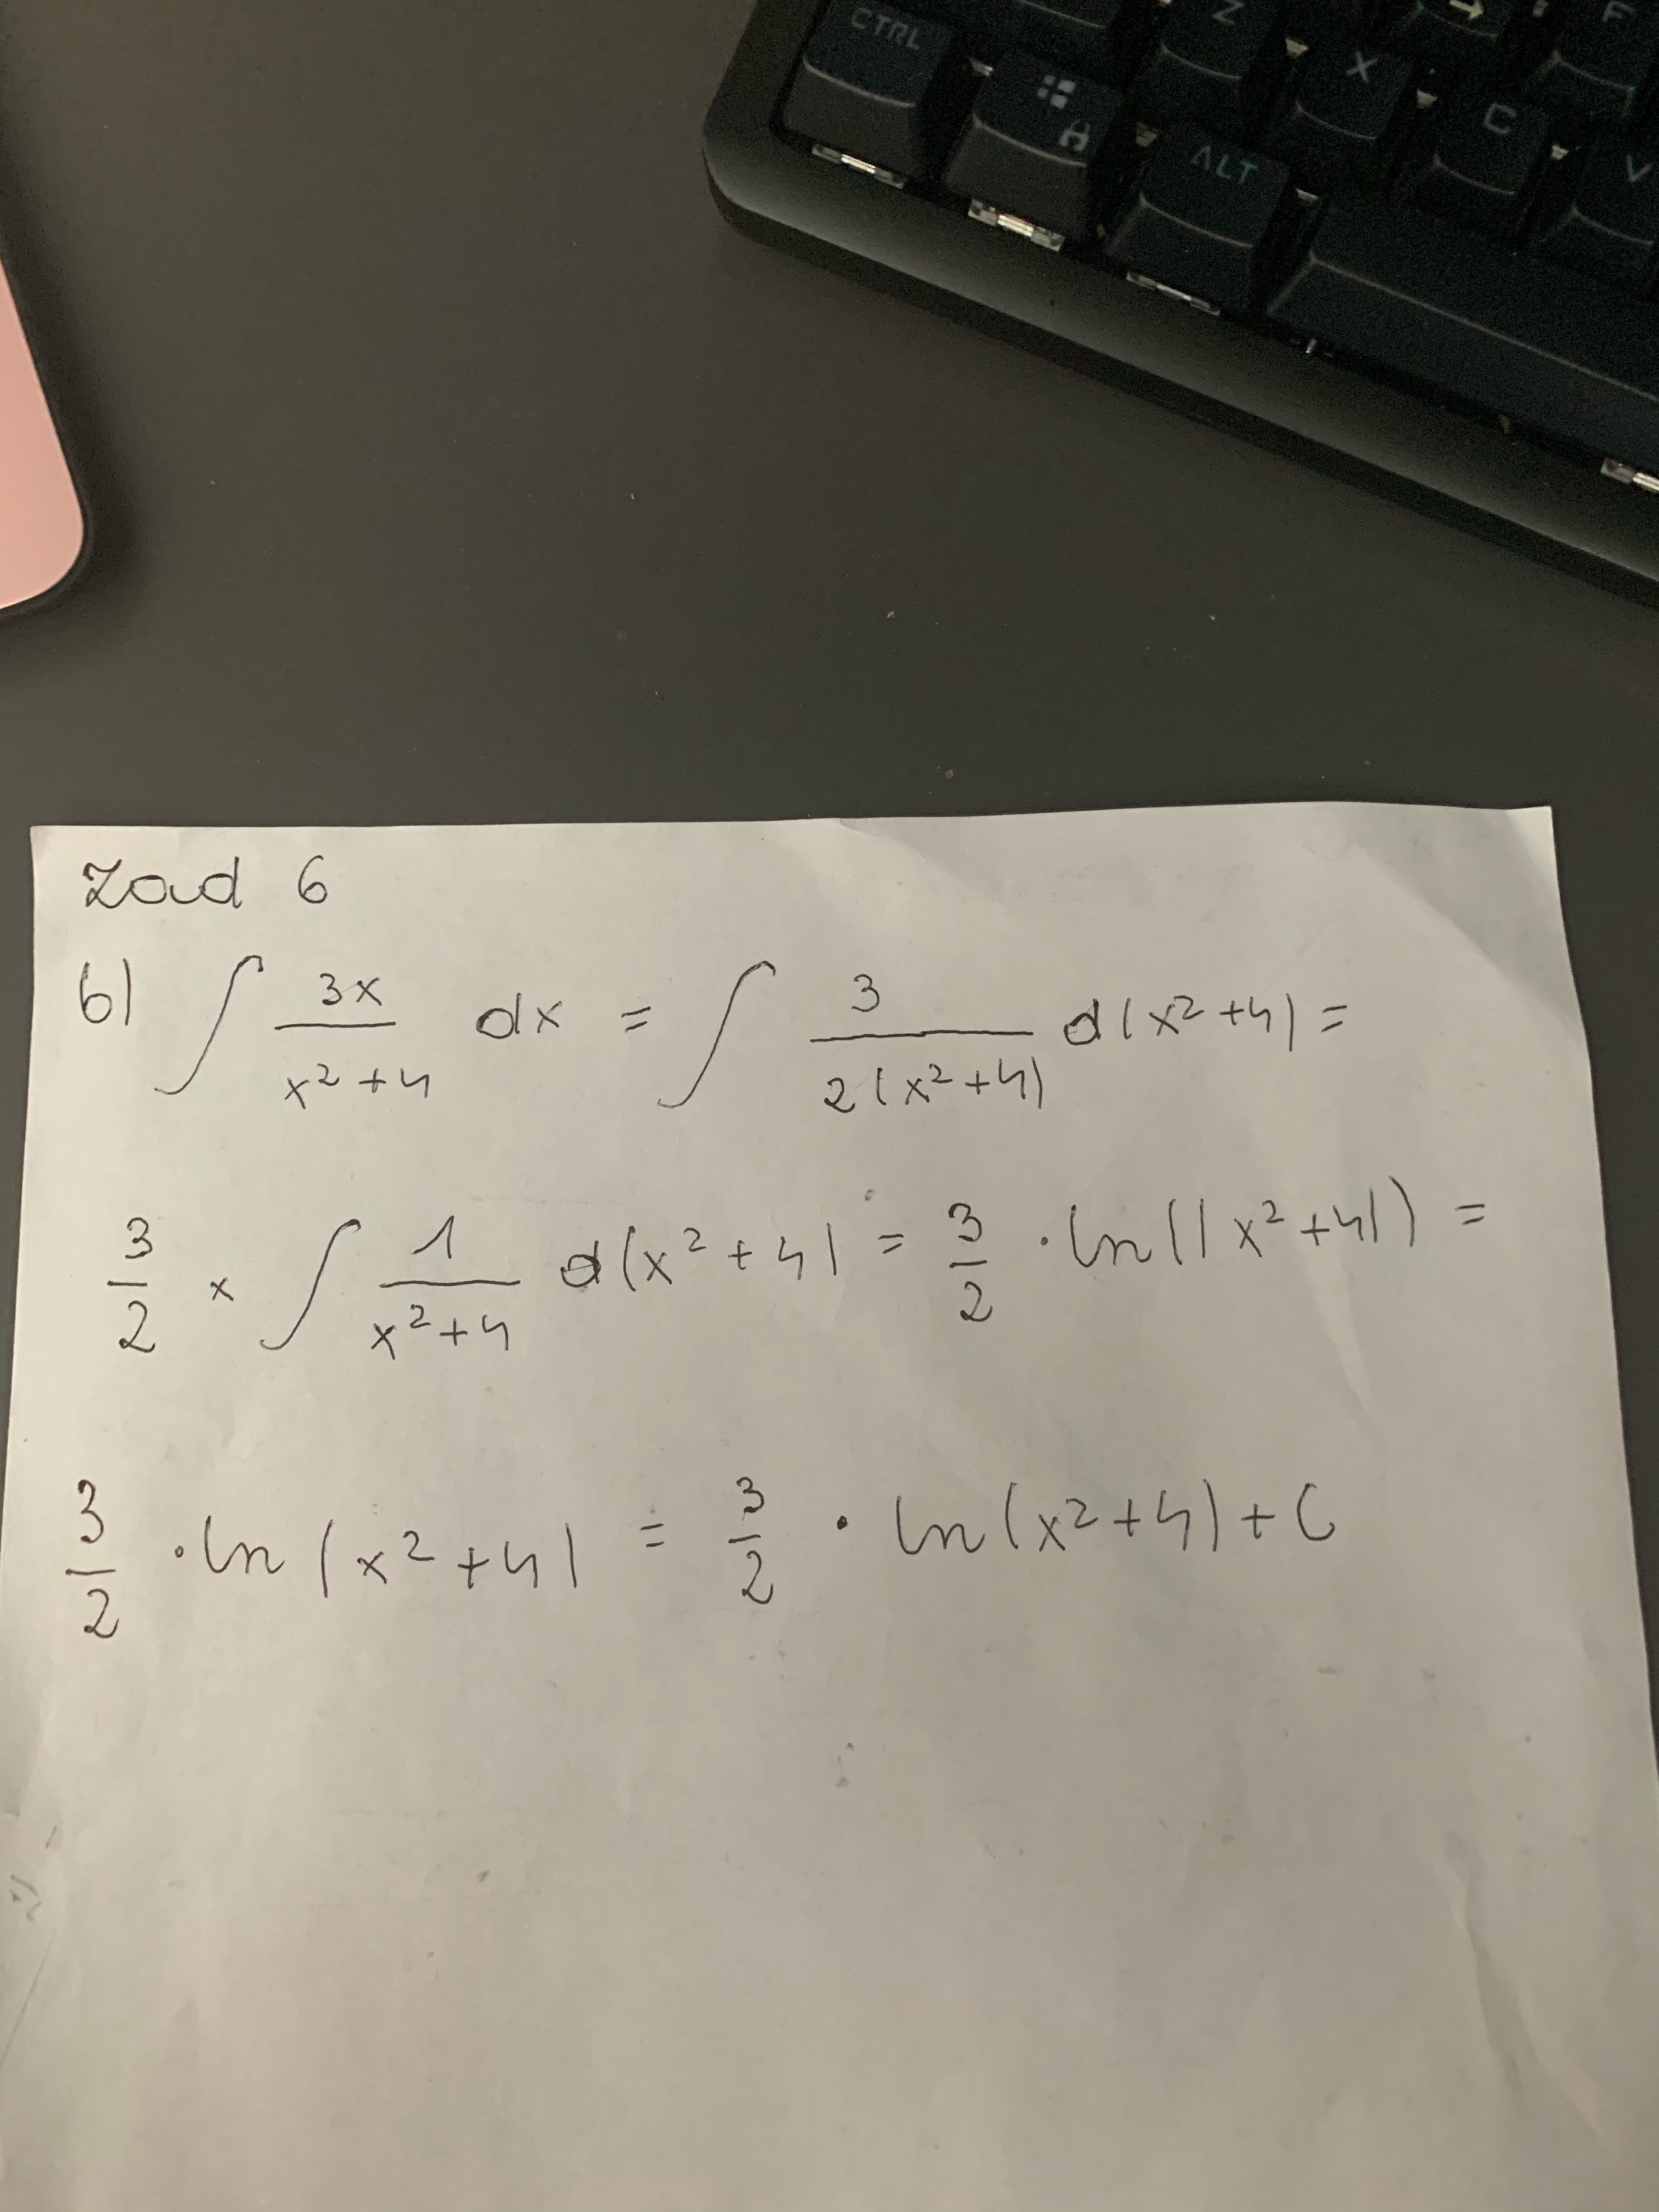 CTRL
Z
F
X
C
ALT
V
Zad 6
b) ∫ 3x / x² + 4 dx = ∫ 3 / 2(x² + 4) d(x² + 4) =
3/2 × ∫ 1 / x² + 4 d(x² + 4) = 3/2 · ln(|x² + 4|) =
3/2 · ln(x² + 4) = 3/2 · ln(x² + 4) + C